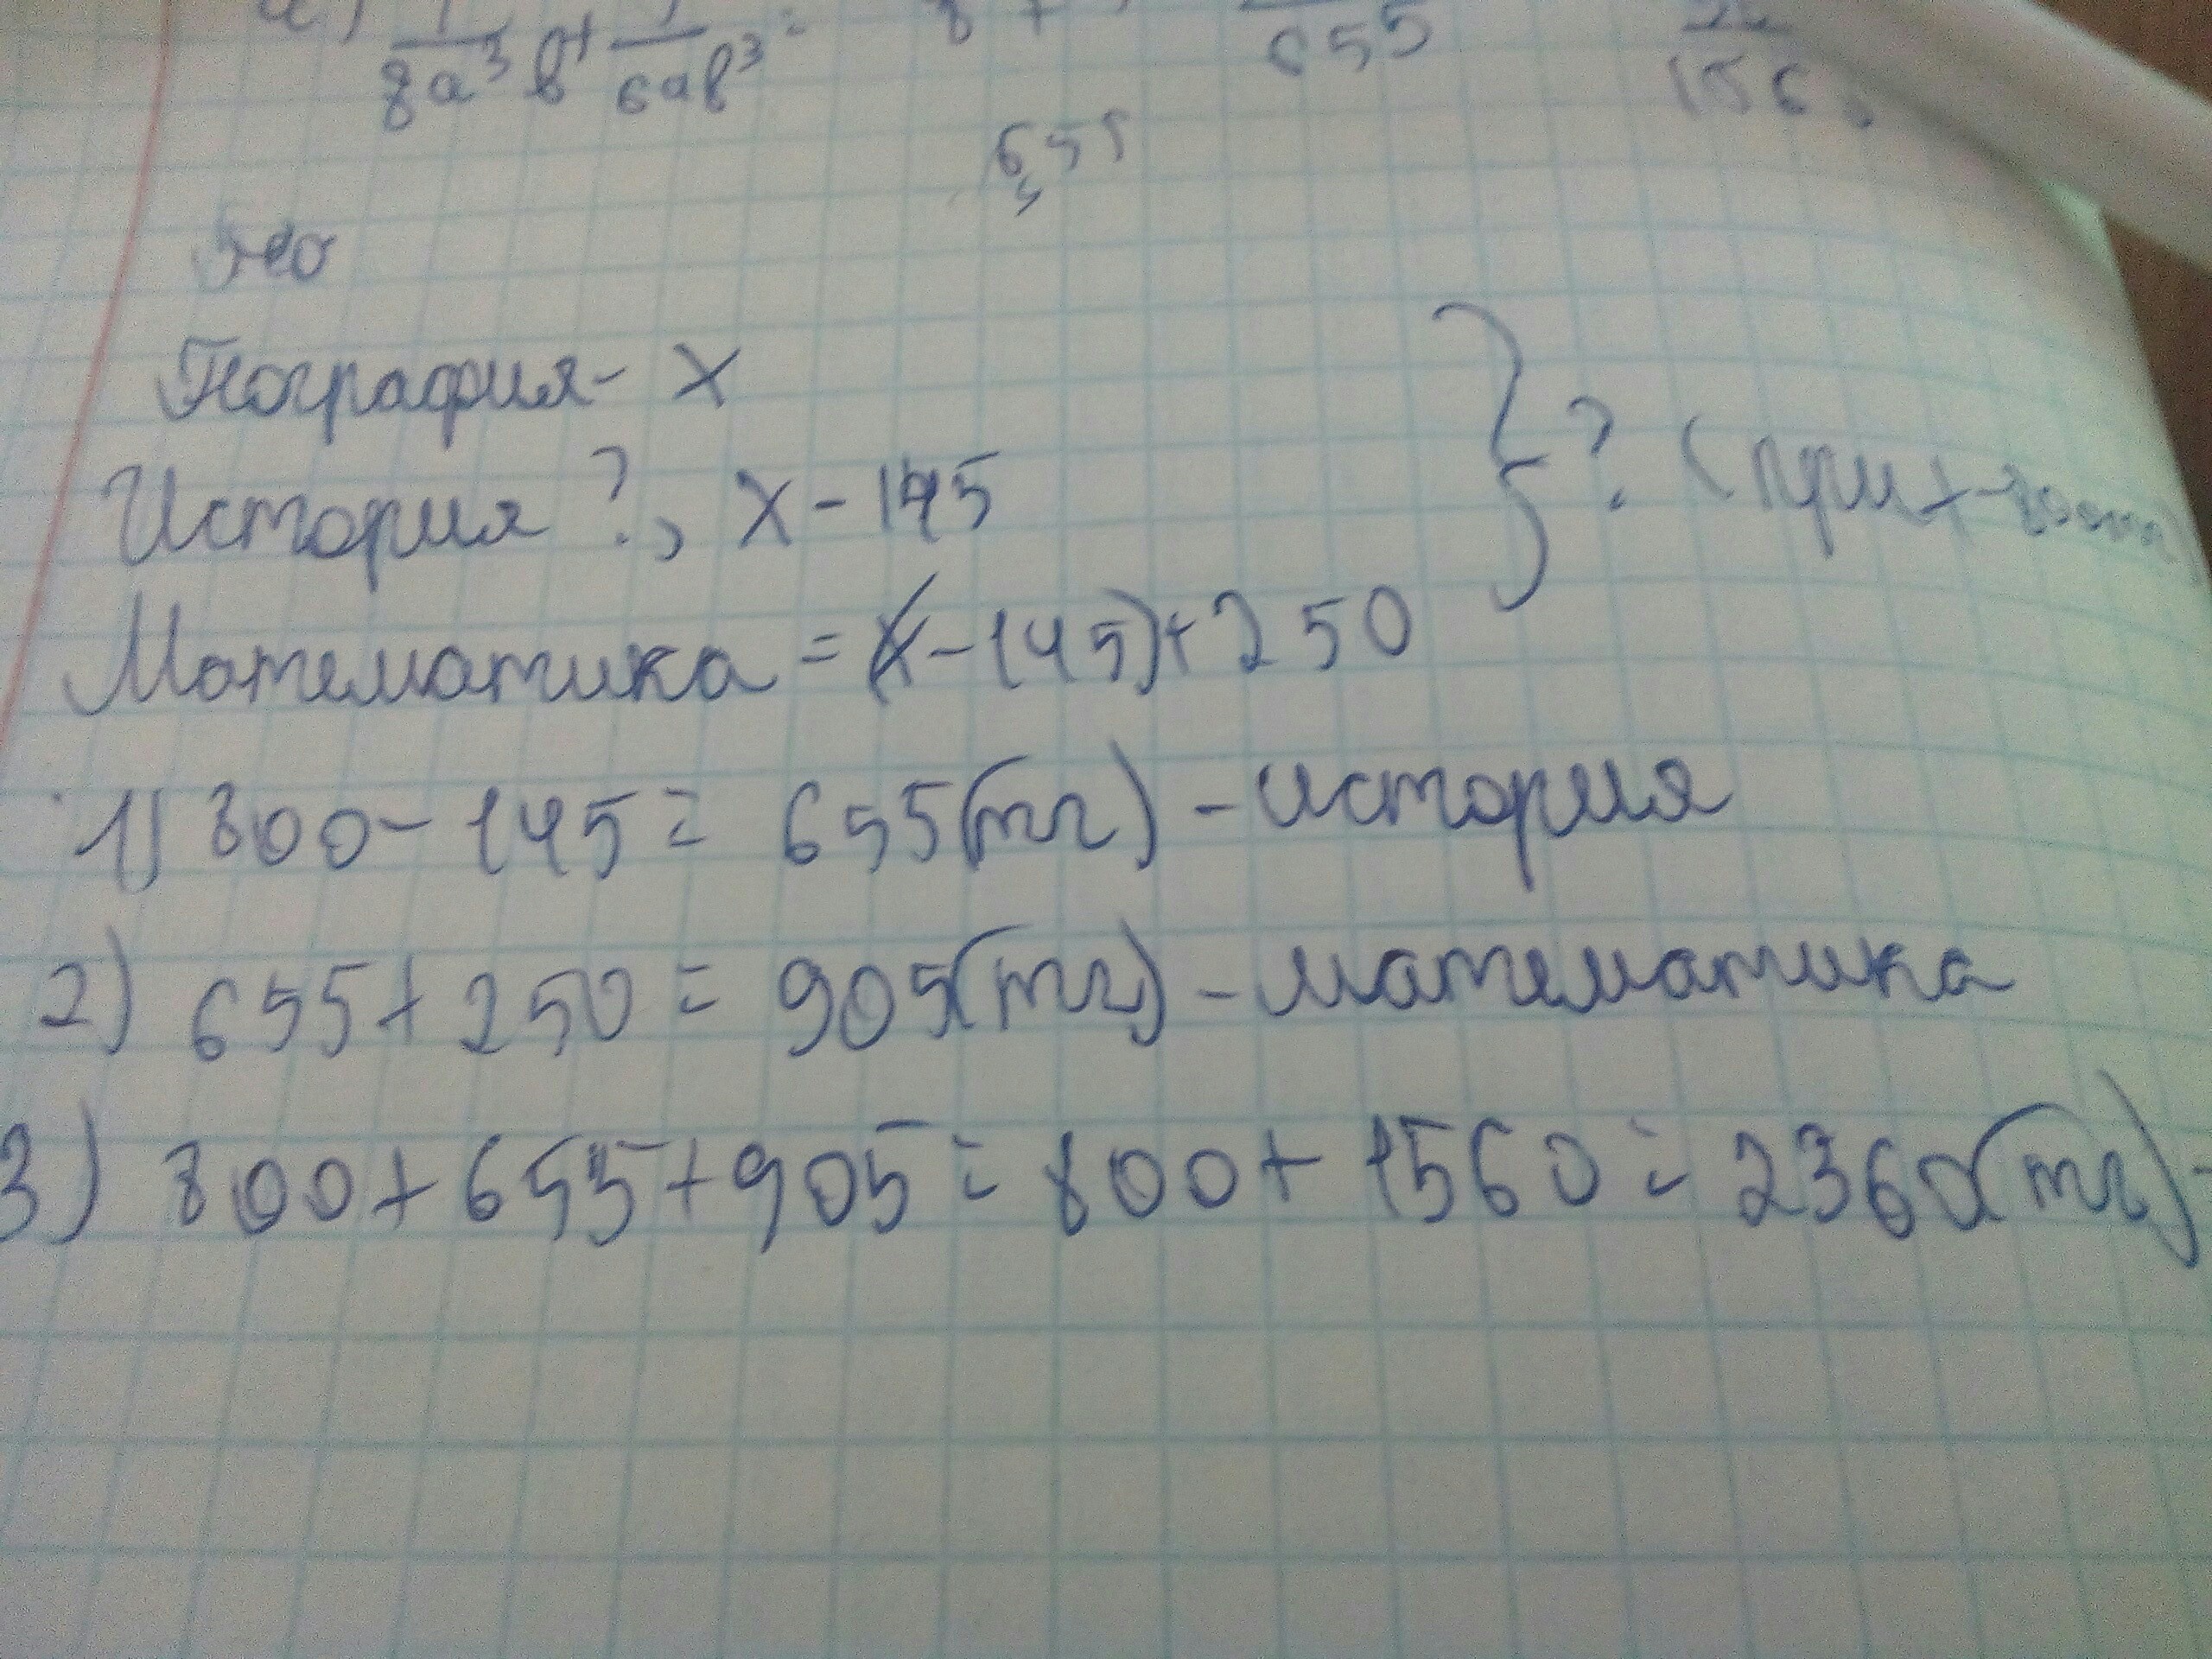 1/8a³b + 1/6ab³ =
655
655
География - x
История ?, x - 145
Математика = (x - 145) + 250
} ? (при x -
1) 800 - 145 = 655 (тг) - история
2) 655 + 250 = 905 (тг) - математика
3) 800 + 655 + 905 = 800 + 1560 = 2360 (тг) -